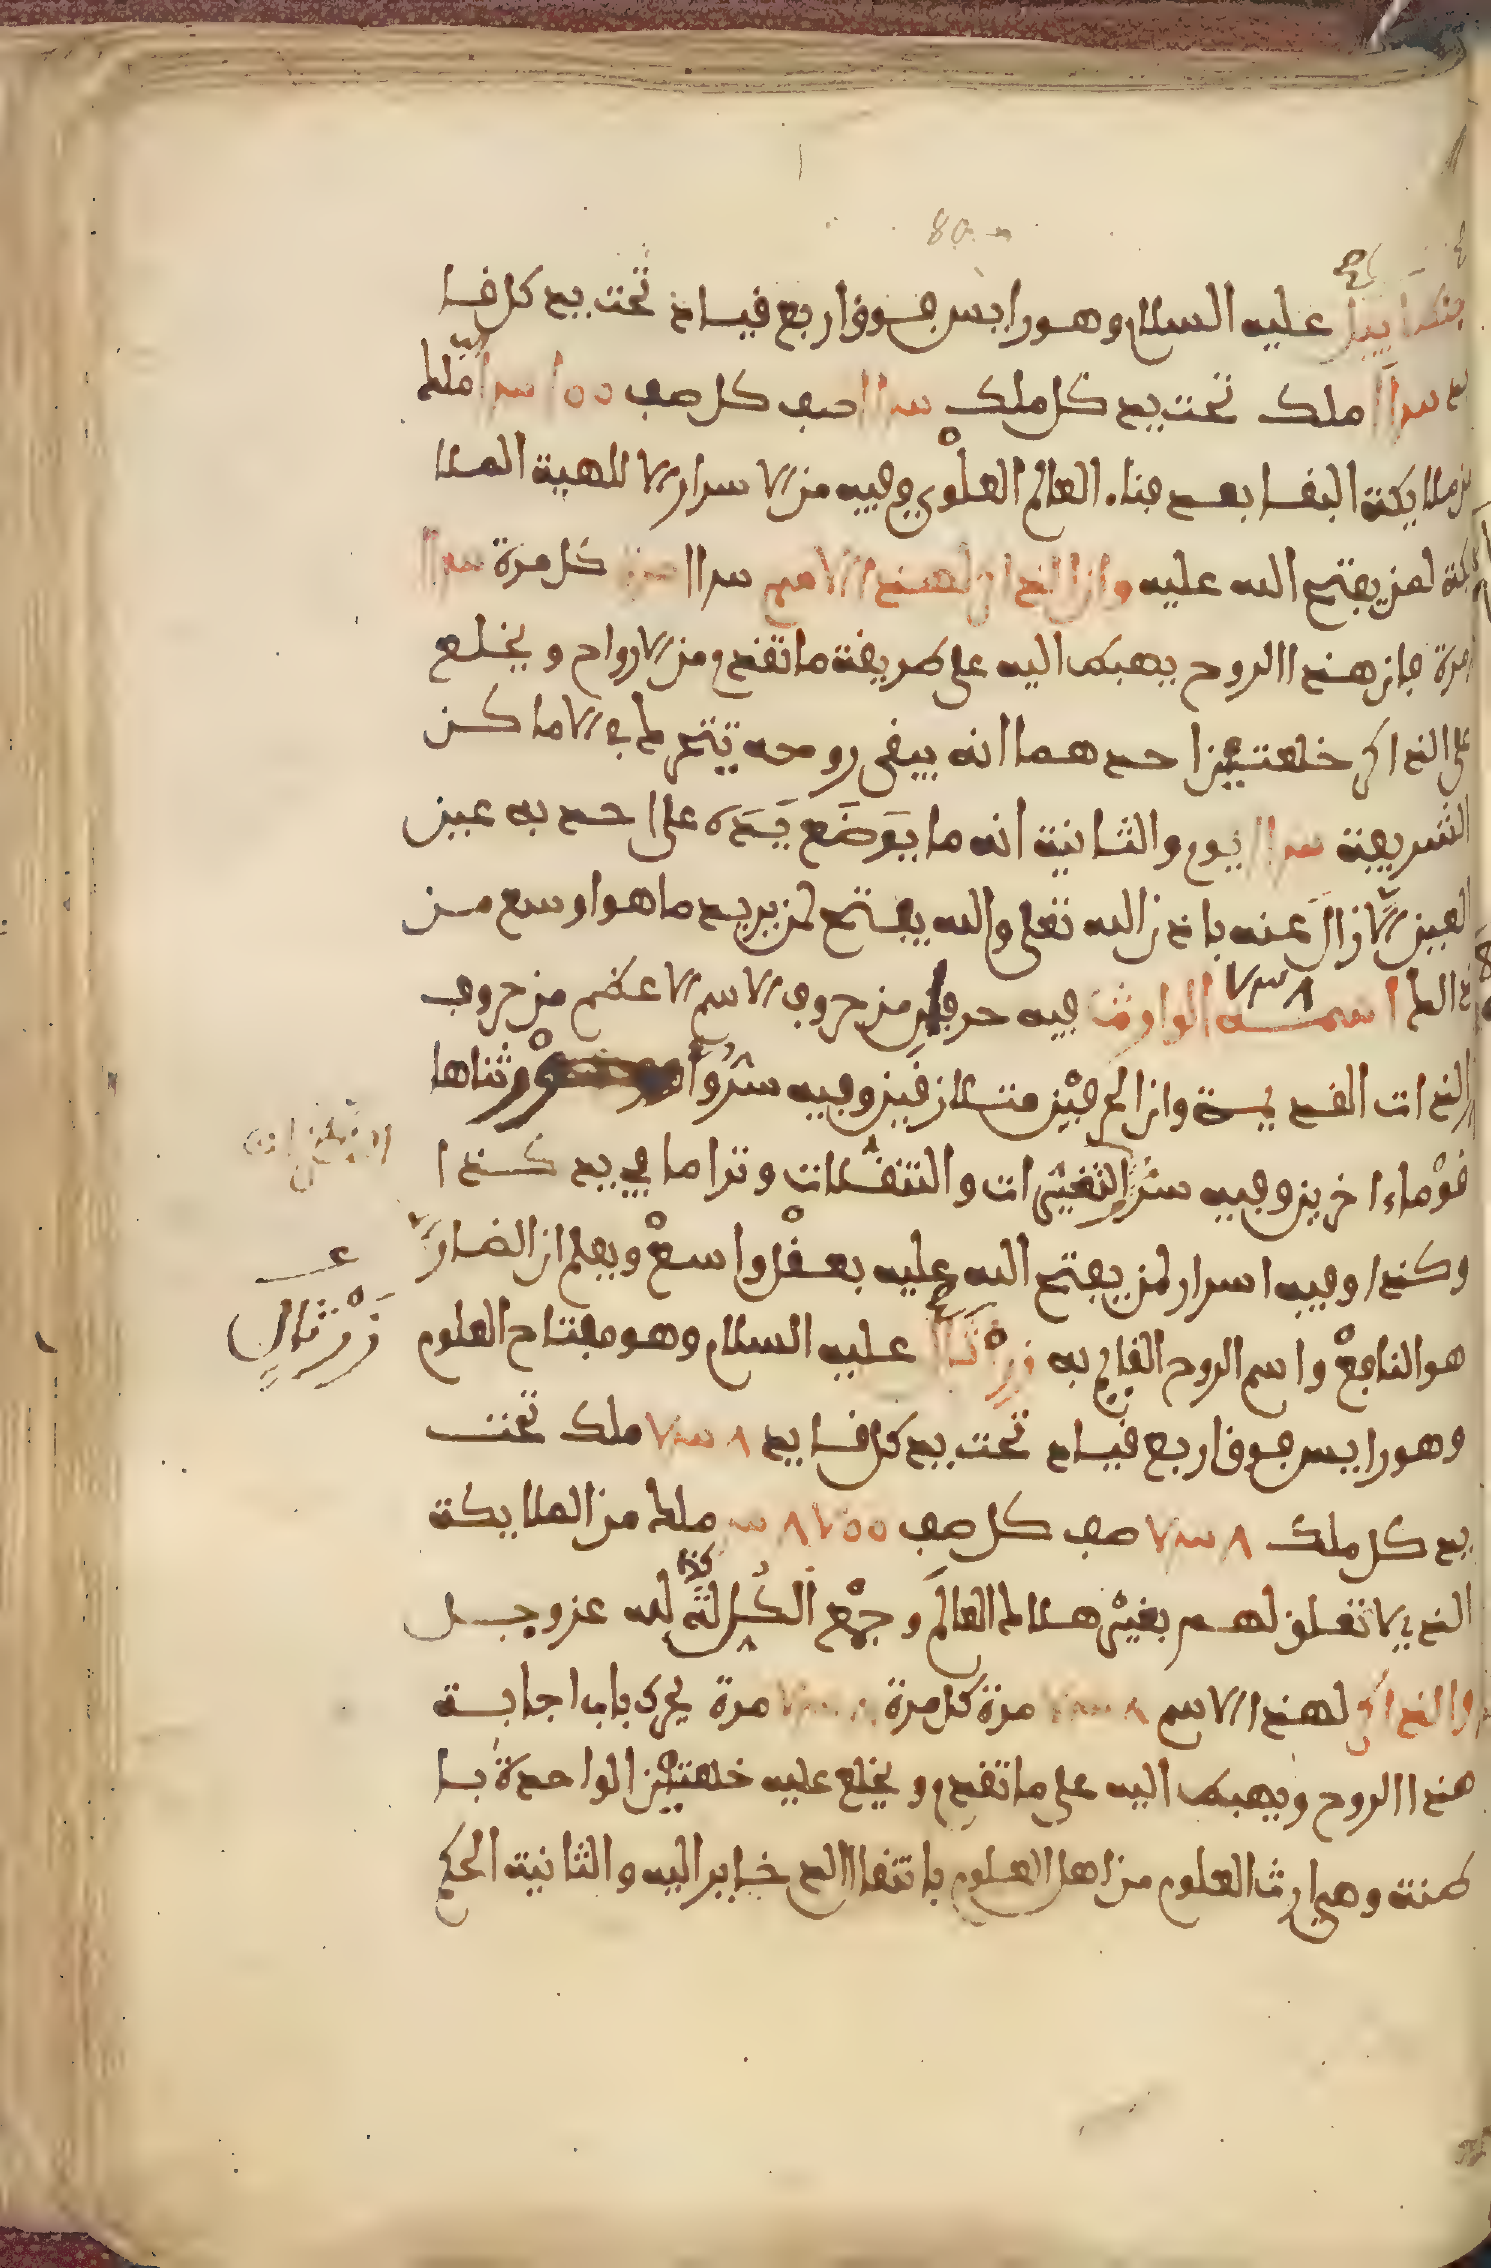 عليه السلام وهو رايس جوق اربع قياد تحت يد كل قا
يد ملك تحت يد كل ملك صف كل صف ملكا
من ملايكة البقا بعد فناء العالم العلوي وفيه من الاسرار الالهية الملا
يكة لمن يفتح الله عليه وان الذاكر لهذا الاسم مرة كل مرة
مرة فان هذا الروح يهبط اليه على طريقة ما تقدم من الارواح ويخلع
على الذاكر خلعتين احدهما انه يبقى روحه تتحرك في الاماكن
الشريفة يوم والثانية انه ما يوضع يده على احد به عين
العين الا زال عنه باذن الله تعلى والله يفتح لمن يريد ما هو اوسع من
ذالك اسمه الوارث فيه حرفين من حروف الاسم الاعظم من حروف
الذات القديمة وان الحرفين متلازقين وفيه سر واورثناها
قوما اخرين وفيه سر التغيرات والتنقلات وترا ما في يد كذا
وكذا وفيه اسرار لمن يفتح الله عليه بعقل واسع ويعلم ان الضار
هو النافع واسم الروح القايم به عليه السلام وهو مفتاح العلوم
وهو رايس جوق اربع قياد تحت يد كل قايد ٧٣٨ ملك تحت
يد كل ملك ٧٣٨ صف كل صف ملك من الملايكة
الذي لا تعلق لهم بغير هلاك العالم وجمع الكل لله عز وجل
والذاكر لهذا الاسم مرة كل مرة مرة يحرك باب اجابة
هذا الروح ويهبط اليه على ما تقدم ويخلع عليه خلعتين الواحدة با
طنة وهي ارث العلوم من اهل العلوم بانتقال الذخاير اليه والثانية الحكم